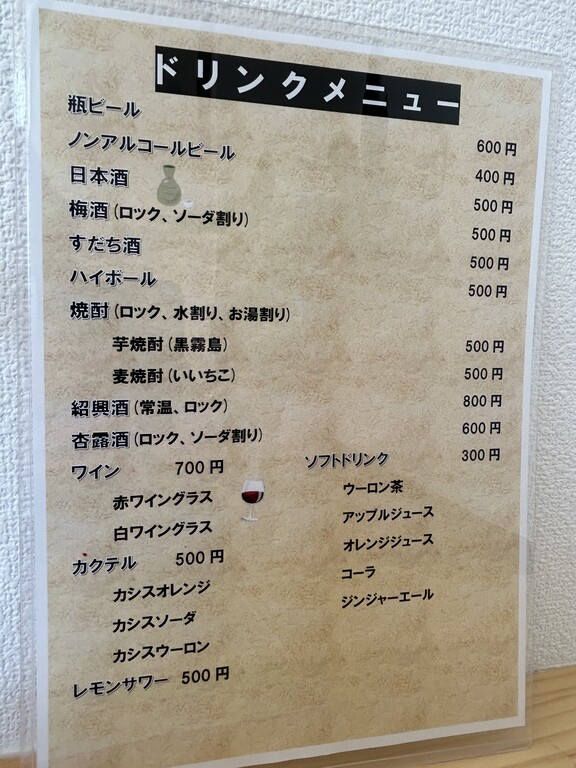 ドリンクメニュー
瓶ビール 600円
ノンアルコールビール 400円
日本酒 500円
梅酒(ロック、ソーダ割り) 500円
すだち酒 500円
ハイボール 500円
焼酎(ロック、水割り、お湯割り)
芋焼酎(黒霧島) 500円
麦焼酎(いいちこ) 500円
紹興酒(常温、ロック) 800円
杏露酒(ロック、ソーダ割り) 600円
ワイン 700円
赤ワイングラス
白ワイングラス
カクテル 500円
カシスオレンジ
カシスソーダ
カシスウーロン
レモンサワー 500円
ソフトドリンク 300円
ウーロン茶
アップルジュース
オレンジジュース
コーラ
ジンジャーエール